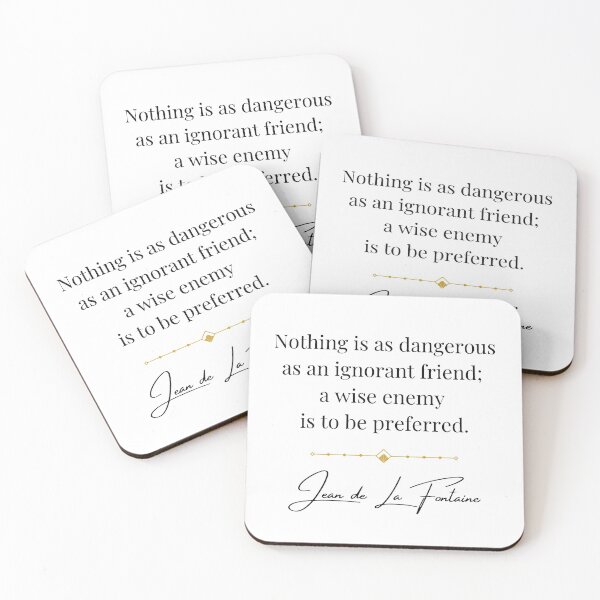 Nothing is as dangerous
as an ignorant friend;
a wise enemy
is to
Nothing is as dangerous
as an ignorant friend;
a wise enemy
is to be preferred.
Nothing is as dangerous
as an ignorant friend;
a wise enemy
is to be preferred.
Jean de La
Nothing is as dangerous
as an ignorant friend;
a wise enemy
is to be preferred.
Jean de La Fontaine